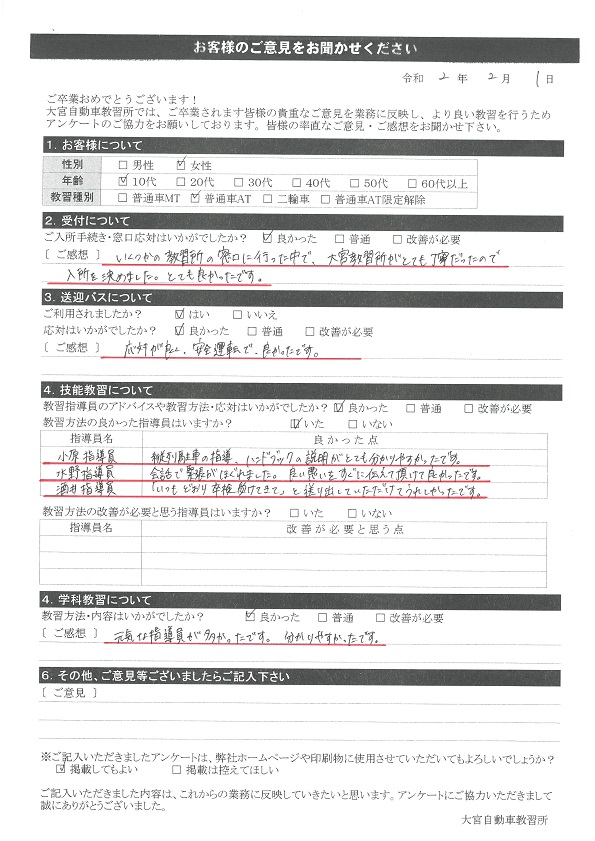 お客様のご意見をお聞かせください
令和 2 年 2 月 1 日
ご卒業おめでとうございます！
大宮自動車教習所では、ご卒業されます皆様の貴重なご意見を業務に反映し、より良い教習を行うため
アンケートのご協力をお願いしております。皆様の率直なご意見・ご感想をお聞かせ下さい。
1. お客様について
性別 □ 男性 ☑ 女性
年齢 ☑ 10代 □ 20代 □ 30代 □ 40代 □ 50代 □ 60代以上
教習種別 □ 普通車MT ☑ 普通車AT □ 二輪車 □ 普通車AT限定解除
2. 受付について
ご入所手続き・窓口応対はいかがでしたか？ ☑ 良かった □ 普通 □ 改善が必要
[ ご感想 ] いくつかの教習所の窓口に行った中で、大宮教習所がとても丁寧だったので
入所を決めました。とても良かったです。
3. 送迎バスについて
ご利用されましたか？ ☑ はい □ いいえ
応対はいかがでしたか？ ☑ 良かった □ 普通 □ 改善が必要
[ ご感想 ] 応対が良く、安全運転で、良かったです。
4. 技能教習について
教習指導員のアドバイスや教習方法・応対はいかがでしたか？ ☑ 良かった □ 普通 □ 改善が必要
教習方法の良かった指導員はいますか？ ☑ いた □ いない
指導員名 良かった点
小原指導員 縦列駐車の指導、ハンドブックの説明がとても分かりやすかったです。
水野指導員 会話で緊張がほぐれました。良い悪いをすぐに伝えて頂けて良かったです。
酒井指導員 「いつもどおり卒検受けてきて」と送り出していただけてうれしかったです。
教習方法の改善が必要と思う指導員はいますか？ □ いた □ いない
指導員名 改善が必要と思う点
4. 学科教習について
教習方法・内容はいかがでしたか？ ☑ 良かった □ 普通 □ 改善が必要
[ ご感想 ] 元気な指導員が多かったです。分かりやすかったです。
6. その他、ご意見等ございましたらご記入下さい
[ ご意見 ]
※ご記入いただきましたアンケートは、弊社ホームページや印刷物に使用させていただいてもよろしいでしょうか？
☑ 掲載してもよい □ 掲載は控えてほしい
ご記入いただきました内容は、これからの業務に反映していきたいと思います。アンケートにご協力いただきまして
誠にありがとうございました。
大宮自動車教習所